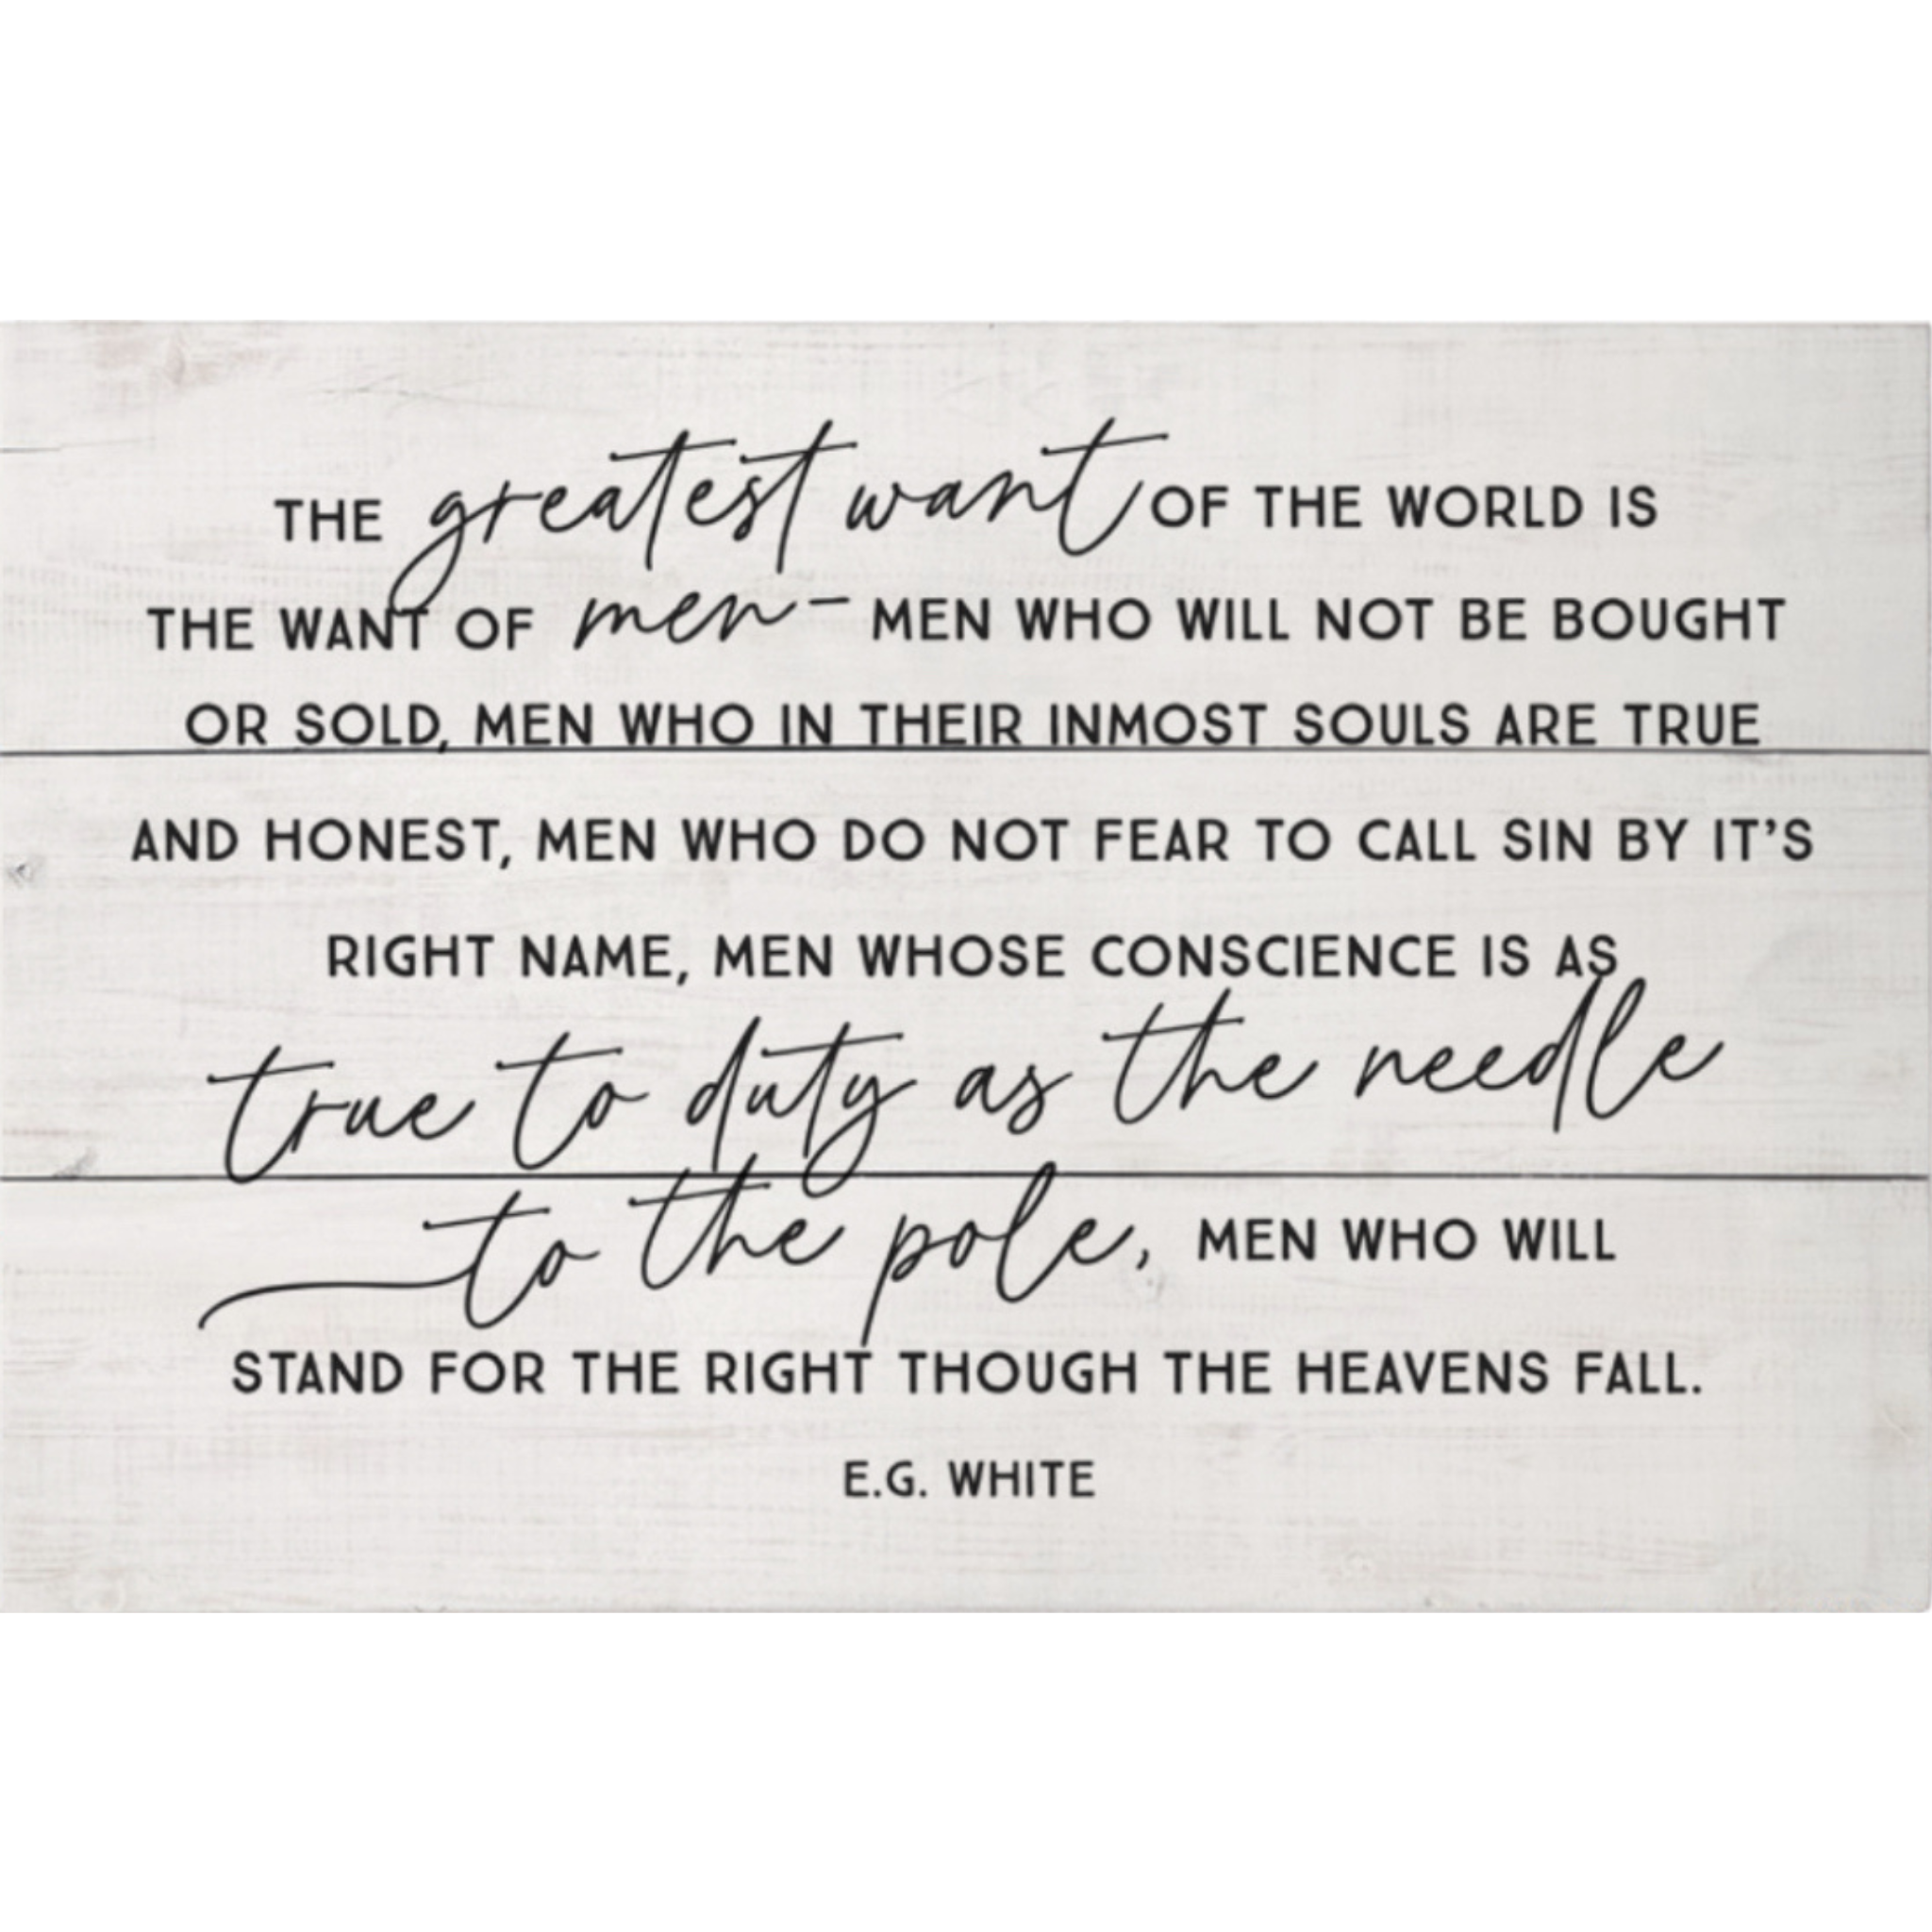 THE greatest want OF THE WORLD IS
THE WANT OF men- MEN WHO WILL NOT BE BOUGHT
OR SOLD, MEN WHO IN THEIR INMOST SOULS ARE TRUE
AND HONEST, MEN WHO DO NOT FEAR TO CALL SIN BY IT'S
RIGHT NAME, MEN WHOSE CONSCIENCE IS AS
true to duty as the needle
to the pole, MEN WHO WILL
STAND FOR THE RIGHT THOUGH THE HEAVENS FALL.
E.G. WHITE